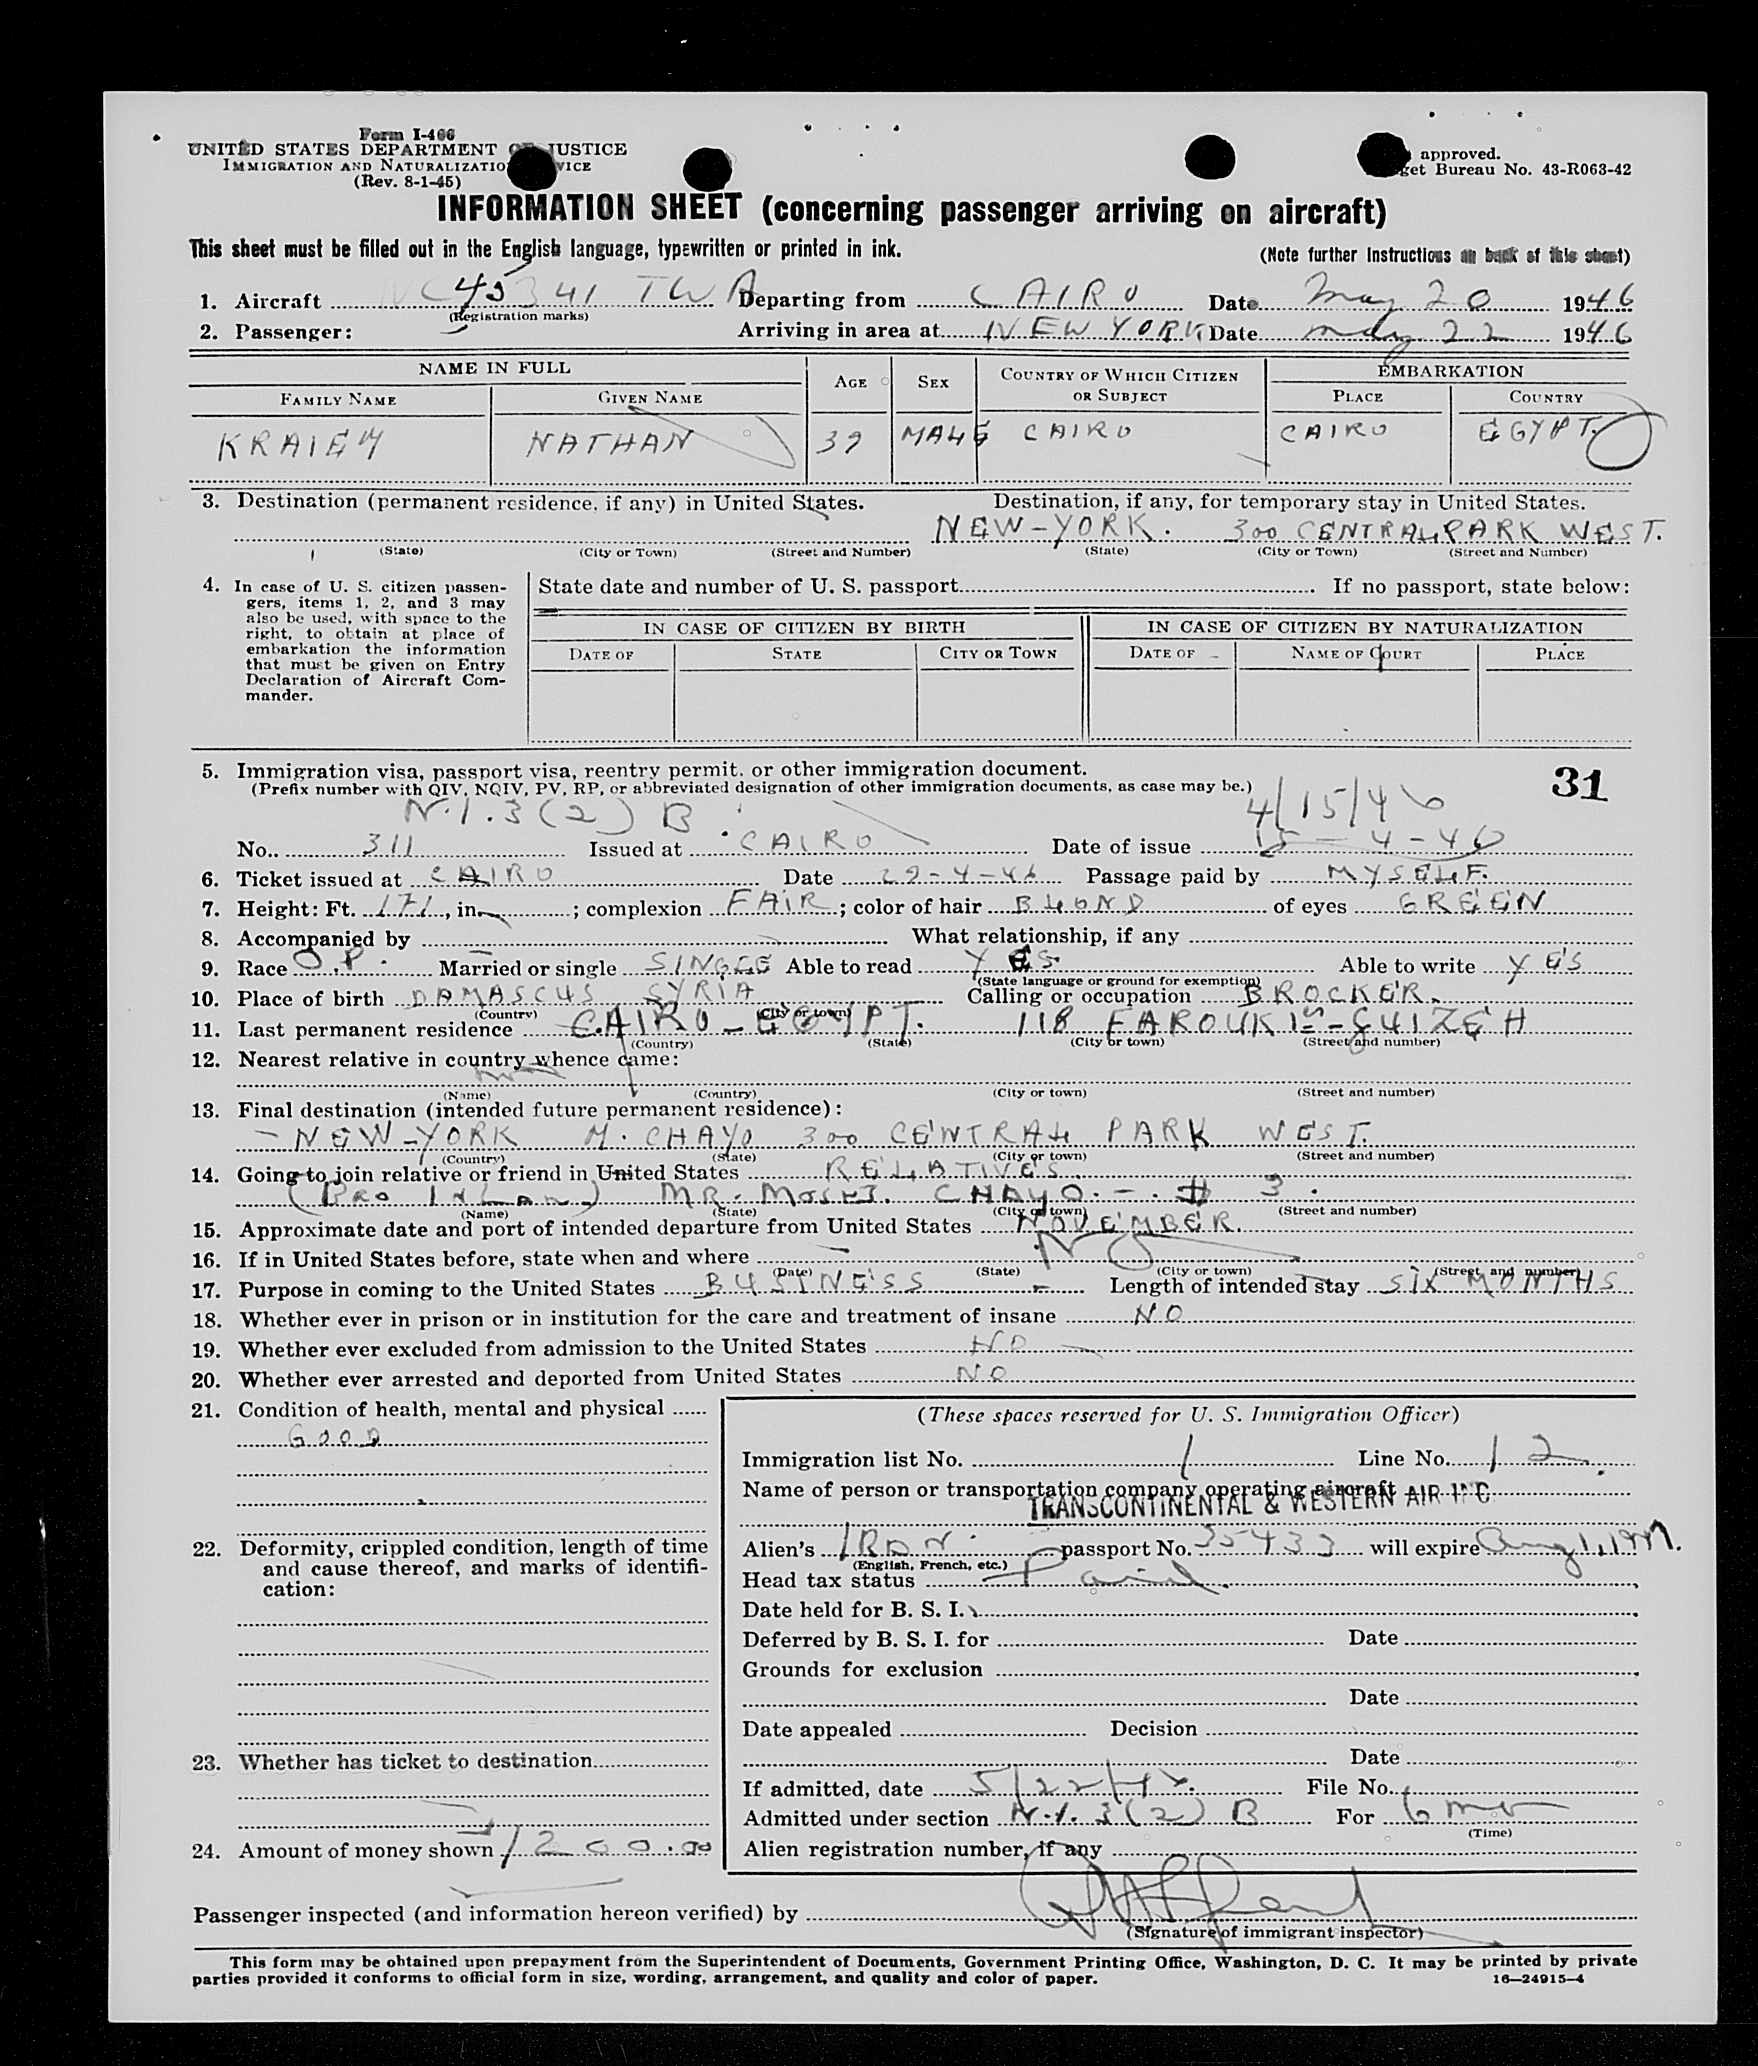 Form I-466
UNITED STATES DEPARTMENT OF JUSTICE
IMMIGRATION AND NATURALIZATION SERVICE
(Rev. 8-1-45)
approved.
get Bureau No. 43-R063-42
INFORMATION SHEET (concerning passenger arriving on aircraft)
This sheet must be filled out in the English language, typewritten or printed in ink.
(Note further instructions on back of this sheet)
1. Aircraft NC 45341 TWA Departing from CAIRO Date May 20 1946
(Registration marks)
2. Passenger: Arriving in area at NEW YORK Date May 22 1946
NAME IN FULL AGE SEX COUNTRY OF WHICH CITIZEN OR SUBJECT EMBARKATION
FAMILY NAME GIVEN NAME PLACE COUNTRY
KRAIEM NATHAN 39 MALE CAIRO CAIRO EGYPT.
3. Destination (permanent residence, if any) in United States. Destination, if any, for temporary stay in United States.
NEW-YORK. 300 CENTRAL PARK WEST.
(State) (City or Town) (Street and Number) (State) (City or Town) (Street and Number)
4. In case of U. S. citizen passen-
gers, items 1, 2, and 3 may
also be used, with space to the
right, to obtain at place of
embarkation the information
that must be given on Entry
Declaration of Aircraft Com-
mander.
State date and number of U. S. passport If no passport, state below:
IN CASE OF CITIZEN BY BIRTH IN CASE OF CITIZEN BY NATURALIZATION
DATE OF STATE CITY OR TOWN DATE OF NAME OF COURT PLACE
5. Immigration visa, passport visa, reentry permit, or other immigration document.
(Prefix number with QIV, NQIV, PV, RP, or abbreviated designation of other immigration documents, as case may be.)
31
N.I. 3(2) B 4/15/46
No. 311 Issued at CAIRO Date of issue 15-4-46
6. Ticket issued at CAIRO Date 29-4-46 Passage paid by MYSELF.
7. Height: Ft. 171, in. ; complexion FAIR; color of hair BLOND of eyes GREEN
8. Accompanied by What relationship, if any
9. Race O.P. Married or single SINGLE Able to read YES. Able to write YES
(State language or ground for exemption)
10. Place of birth DAMASCUS SYRIA Calling or occupation BROCKER.
(Country) (City or town)
11. Last permanent residence CAIRO-EGYPT. 118 FAROUK 1st - GUIZEH
(Country) (State) (City or town) (Street and number)
12. Nearest relative in country whence came:
(Name) (Country) (City or town) (Street and number)
13. Final destination (intended future permanent residence):
- NEW-YORK M. CHAYO 300 CENTRAL PARK WEST.
(Country) (State) (City or town) (Street and number)
14. Going to join relative or friend in United States RELATIVES
(Bro in Law) MR. CHAYO. - # 3.
(Name) (State) (City or town) (Street and number)
15. Approximate date and port of intended departure from United States NOVEMBER.
16. If in United States before, state when and where No
(Date) (State) (City or town) (Street and number)
17. Purpose in coming to the United States BUSINESS Length of intended stay SIX MONTHS
18. Whether ever in prison or in institution for the care and treatment of insane NO
19. Whether ever excluded from admission to the United States NO
20. Whether ever arrested and deported from United States NO
21. Condition of health, mental and physical
GOOD
22. Deformity, crippled condition, length of time
and cause thereof, and marks of identifi-
cation:
23. Whether has ticket to destination
24. Amount of money shown 1200.00
(These spaces reserved for U. S. Immigration Officer)
Immigration list No. 1 Line No. 12
Name of person or transportation company operating aircraft
TRANSCONTINENTAL & WESTERN AIR INC
Alien's IRAN passport No. 35433 will expire Aug 1, 1947.
(English, French, etc.)
Head tax status Paid.
Date held for B. S. I.
Deferred by B. S. I. for Date
Grounds for exclusion
Date
Date appealed Decision
Date
If admitted, date 5/22/46. File No.
Admitted under section N.I. 3(2) B For 6 mo
(Time)
Alien registration number, if any
Passenger inspected (and information hereon verified) by
(Signature of immigrant inspector)
This form may be obtained upon prepayment from the Superintendent of Documents, Government Printing Office, Washington, D. C. It may be printed by private
parties provided it conforms to official form in size, wording, arrangement, and quality and color of paper. 16-24915-4